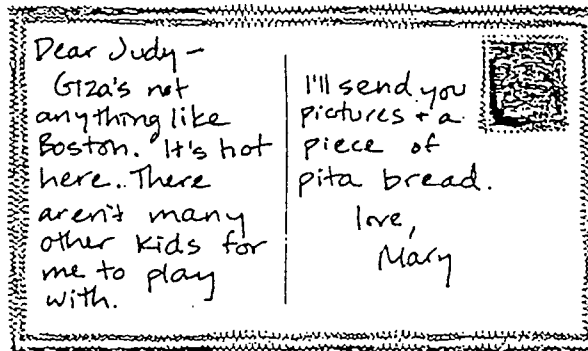 Dear Judy –
Giza's not
anything like
Boston. It's hot
here. There
aren't many
other kids for
me to play
with.
I'll send you
pictures + a
piece of
pita bread.
love,
Mary